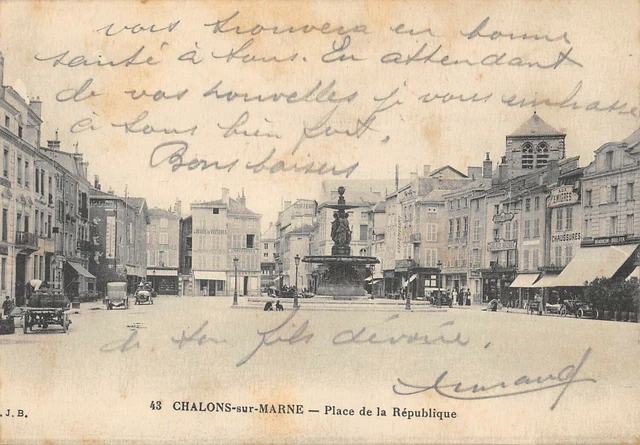 vous trouvera en bonne
santé à tous. En attendant
de vos nouvelles je vous embrasse
a tous bien fort,
Bons baisers
CHAUSSURES
de ton fils dévoué.
43 CHALONS-sur-MARNE — Place de la République
J. B.